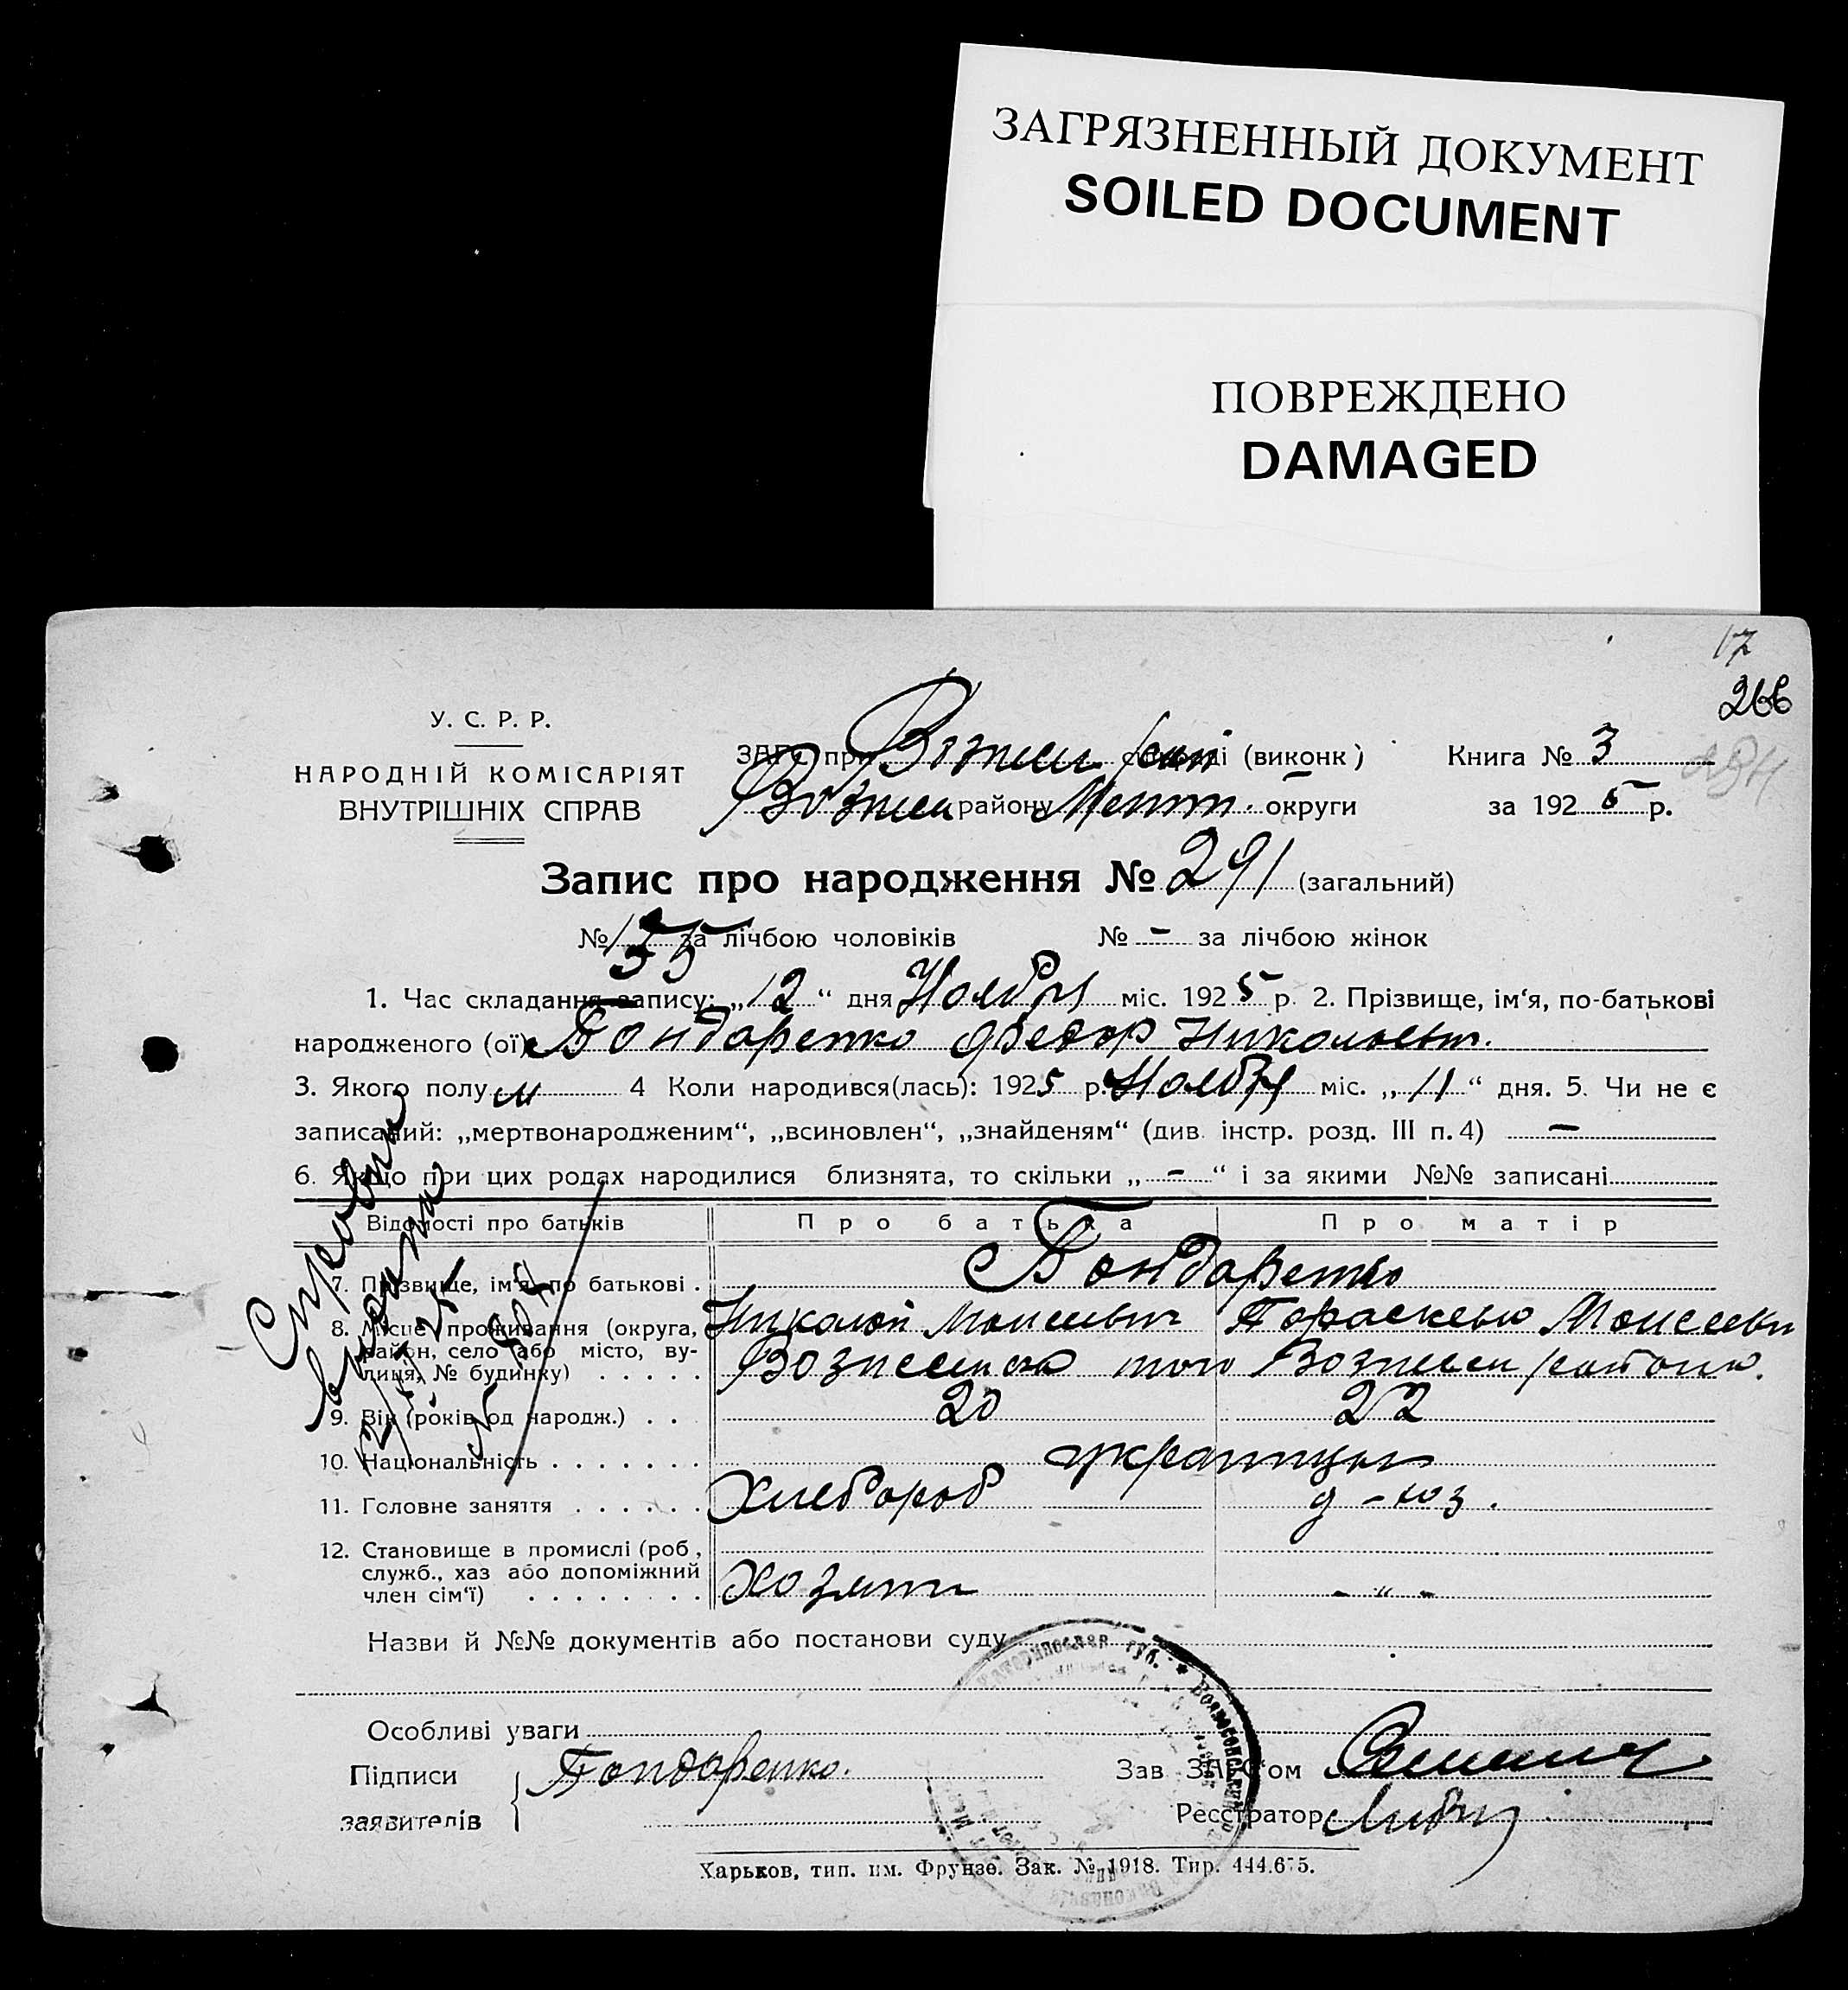 ЗАГРЯЗНЕННЫЙ ДОКУМЕНТ
SOILED DOCUMENT
ПОВРЕЖДЕНО
DAMAGED
17
266
У. С. Р. Р.
НАРОДНІЙ КОМІСАРІЯТ
ВНУТРІШНІХ СПРАВ
ЗАГС при Вознесен (виконк) Книга № 3
Вознесен району Меліт. округи за 1925 р.
Запис про народження № 291 (загальний)
№ 155 за лічбою чоловіків № – за лічбою жінок
1. Час складання запису: „12“ дня Ноября міс. 1925 р. 2. Прізвище, ім‘я, по-батькові
народженого (ої) Бондаренко Федор Николаевич.
3. Якого полу м 4 Коли народився(лась): 1925 р. Ноября міс. „11“ дня. 5. Чи не є
записаний: „мертвонародженим“, „всиновлен“, „знайденям“ (див. інстр. розд. III п. 4) –
6. Якщо при цих родах народилися близнята, то скільки „–“ і за якими №№ записані
Відомості про батьків Про батька Про матір
7. Прізвище, ім‘я, по батькові . Бондаренко
Николай Моисеевич Параскева Моисеевн
8. Місце проживання (округа, район, село або місто, вулиця, № будинку) . . . . . Вознесенка того Вознесен района.
9. Вік (років од народж.) . . 20 22
10. Національність . . . . . . . украинцы
11. Головне заняття . . . . . . Хлебороб д-хоз.
12. Становище в промислі (роб., служб., хаз або допоміжний член сім‘ї) . . . . . . . . Хозяин - „ -
Назви й №№ документів або постанови суду
Особливі уваги
Підписи заявителів { Бондаренко. Зав ЗАГС‘ом
Реєстратор
Харьков, тип. им. Фрунзе. Зак. № 1918. Тир. 444.675.